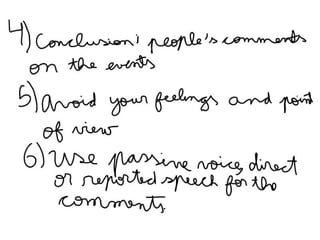 4) Conclusion: people's comments
on the events
5) avoid your feelings and point
of view
6) use passive voice, direct
or reported speech for the
comments.